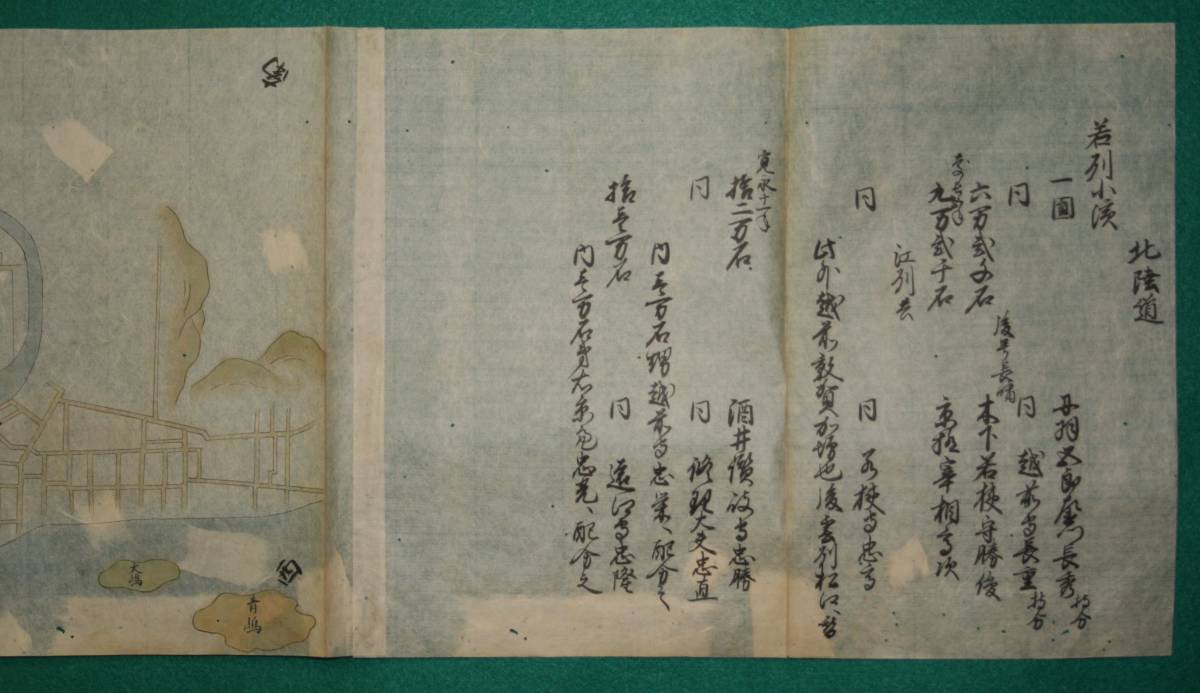 北陸道
若州小濱
一圓 丹羽五郎左衛門長秀 持分
同 同 越前守長重 持分
後号長嘯
六万弐千石 木下若狭守勝俊
九万弐千石 京極宰相高次
江州
同 同 若狭守忠高
此外越前敦賀加増也後雲州松江
寛永十一年
拾二万石 酒井讃岐守忠勝
同 同 修理大夫忠直
内壱万石甥越前守忠 配分之
拾壱万石 同 遠江守忠隆
内壱万石弟右京亮忠 配分之
南
西
大嶋
青嶋